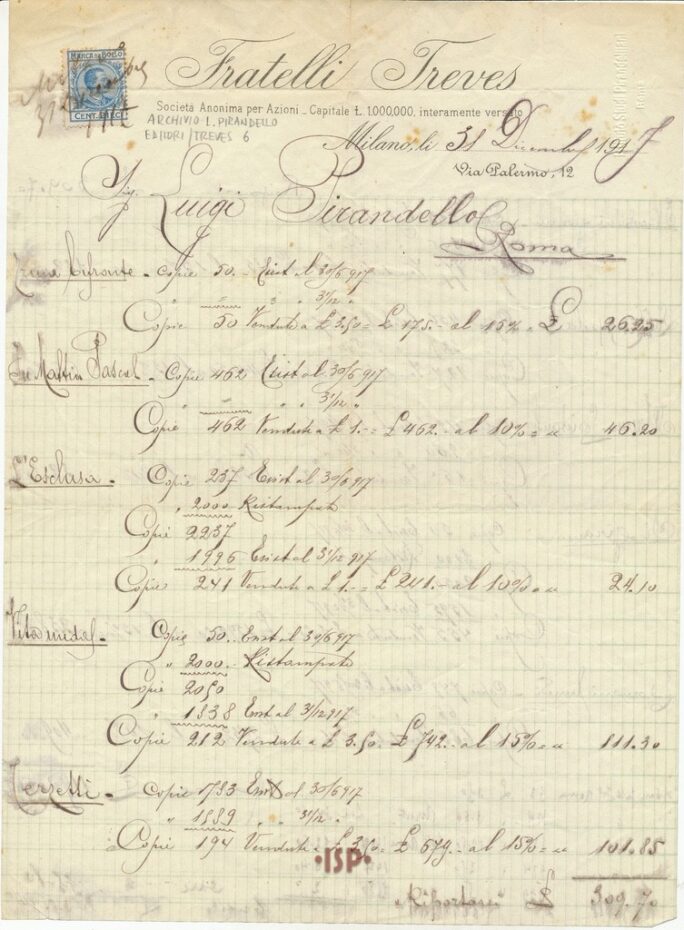 MARCA DA BOLLO
CENT. DIECI
Fratelli Treves
Società Anonima per Azioni - Capitale Ł. 1.000.000, interamente versato
ARCHIVIO L. PIRANDELLO
EDITORI/TREVES 6
Milano, li 31 Dicembre 1917
Via Palermo, 12
Sig. Luigi Pirandello
Roma
Copie 50. Esist al 30/6 917
" " " 31/12 "
Copie 50 Vendute a £ 3.50 = £ 175.- al 15% = £ 26.25
Fu Mattia Pascal - Copie 462 Esist al 30/6 917
" " " 31/12 "
Copie 462 Vendute a £ 1.- = £ 462.- al 10% = " 46.20
L'Esclusa - Copie 237 Esist al 30/6 917
" 2000 Ristampate
Copie 2237
" 1996 Esist al 31/12 917
Copie 241 Vendute a £ 1.- £ 241.- al 10% = " 24.10
Copie 50. Esist al 30/6 917
" 2000.- Ristampate
Copie 2050
" 1838 Esist al 31/12 917
Copie 212 Vendute a £ 3.50. £ 742.- al 15% = " 111.30
Terzetti - Copie 1783 Esist al 30/6 917
" 1589 " " 31/12 "
Copie 194 Vendute a £ 3.50 = £ 679.- al 15% = " 101.85
•ISP•
"Riportarsi" £ 309.70